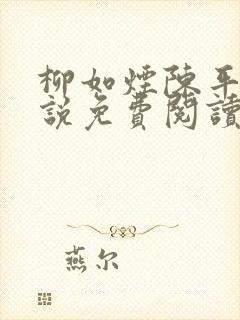 柳如煙陳平
說免費閱讀
燕尔